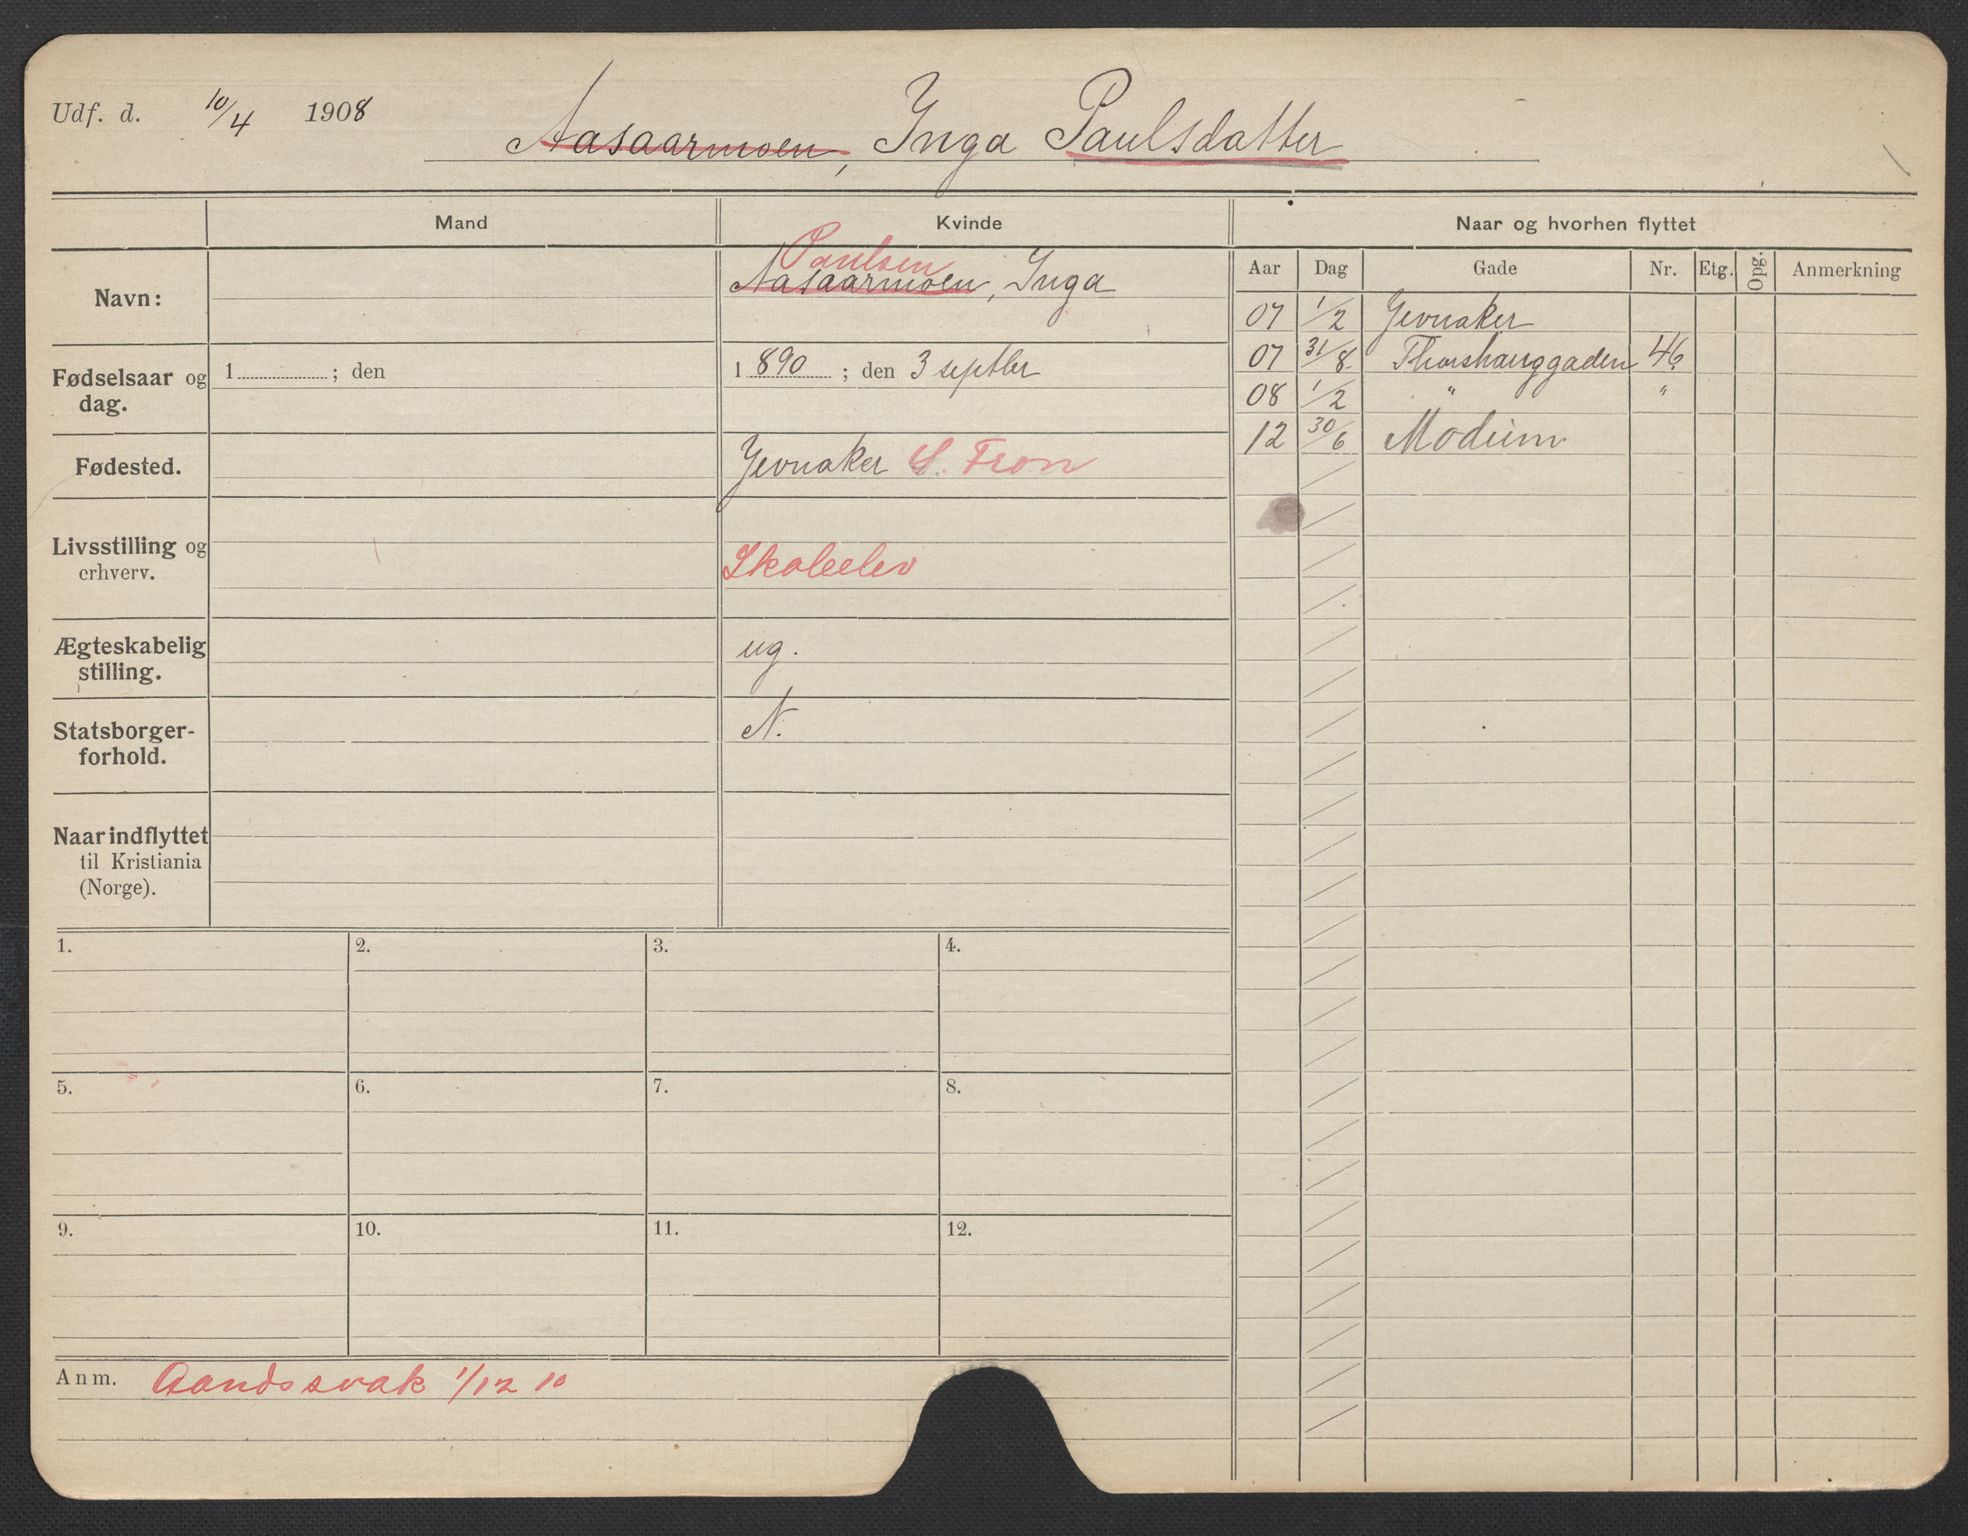 Udf. d. 10/4 1908
Aasaarmoen, Inga Paulsdatter
Mand
Kvinde
Naar og hvorhen flyttet
Aar Dag Gade Nr. Etg. Opg. Anmerkning
Navn:
Paulsen
Aasaarmoen, Inga
07 1/2 Jevnaker
07 31/8 Thorshauggaden 46
08 1/2 " "
12 30/6 Modum
Fødselsaar og
dag.
1 ; den
1890 ; den 3 septbr
Fødested.
Jevnaker S. Fron
Livsstilling og
erhverv.
Skoleelev
Ægteskabelig
stilling.
ug.
Statsborger-
forhold.
N.
Naar indflyttet
til Kristiania
(Norge).
1. 2. 3. 4.
5. 6. 7. 8.
9. 10. 11. 12.
Anm. Aandssvak 1/12 10